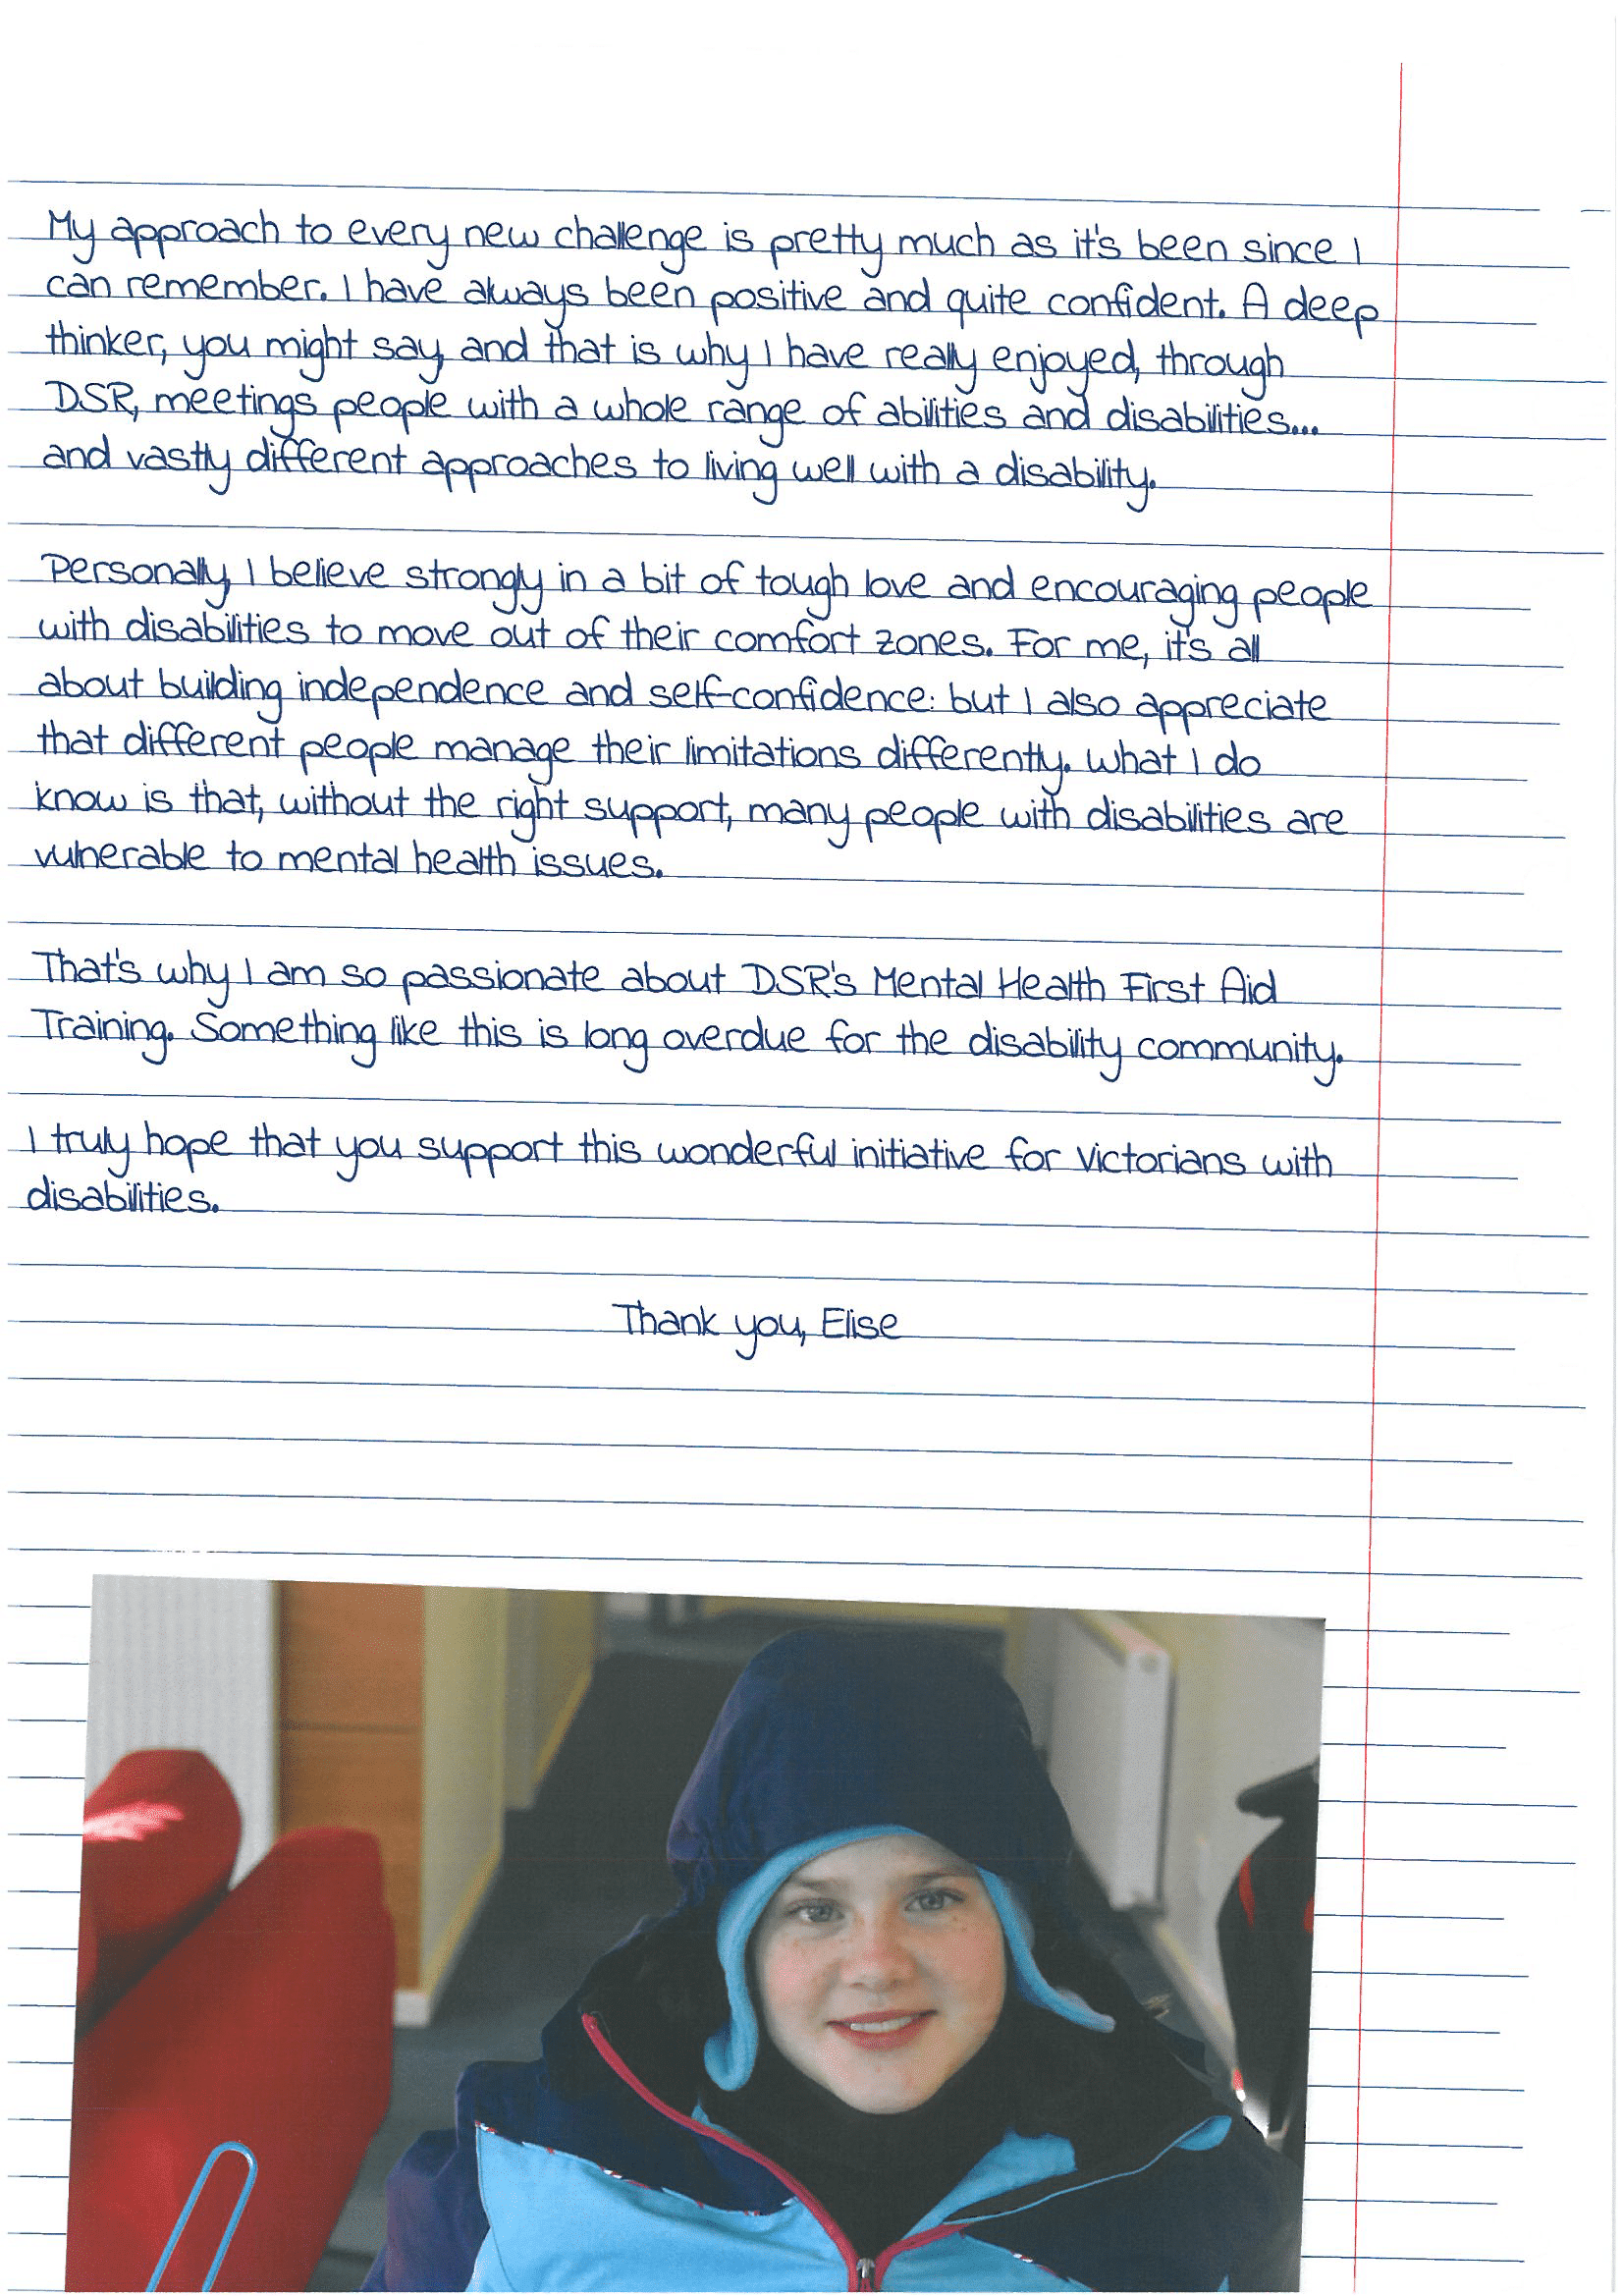 My approach to every new challenge is pretty much as it's been since I
can remember. I have always been positive and quite confident. A deep
thinker, you might say, and that is why I have really enjoyed, through
DSR, meetings people with a whole range of abilities and disabilities...
and vastly different approaches to living well with a disability.
Personally, I believe strongly in a bit of tough love and encouraging people
with disabilities to move out of their comfort zones. For me, it's all
about building independence and self-confidence: but I also appreciate
that different people manage their limitations differently. What I do
know is that, without the right support, many people with disabilities are
vulnerable to mental health issues.
That's why I am so passionate about DSR's Mental Health First Aid
Training. Something like this is long overdue for the disability community.
I truly hope that you support this wonderful initiative for Victorians with
disabilities.
Thank you, Elise